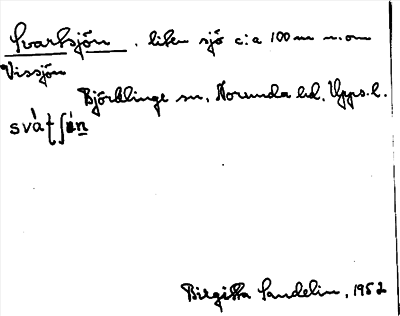 Svartsjön . liten sjö c:a 100 m n. om
Vissjön
Björklinge sn, Norunda hd, Upps. l.
Birgitta Sandelin, 1952